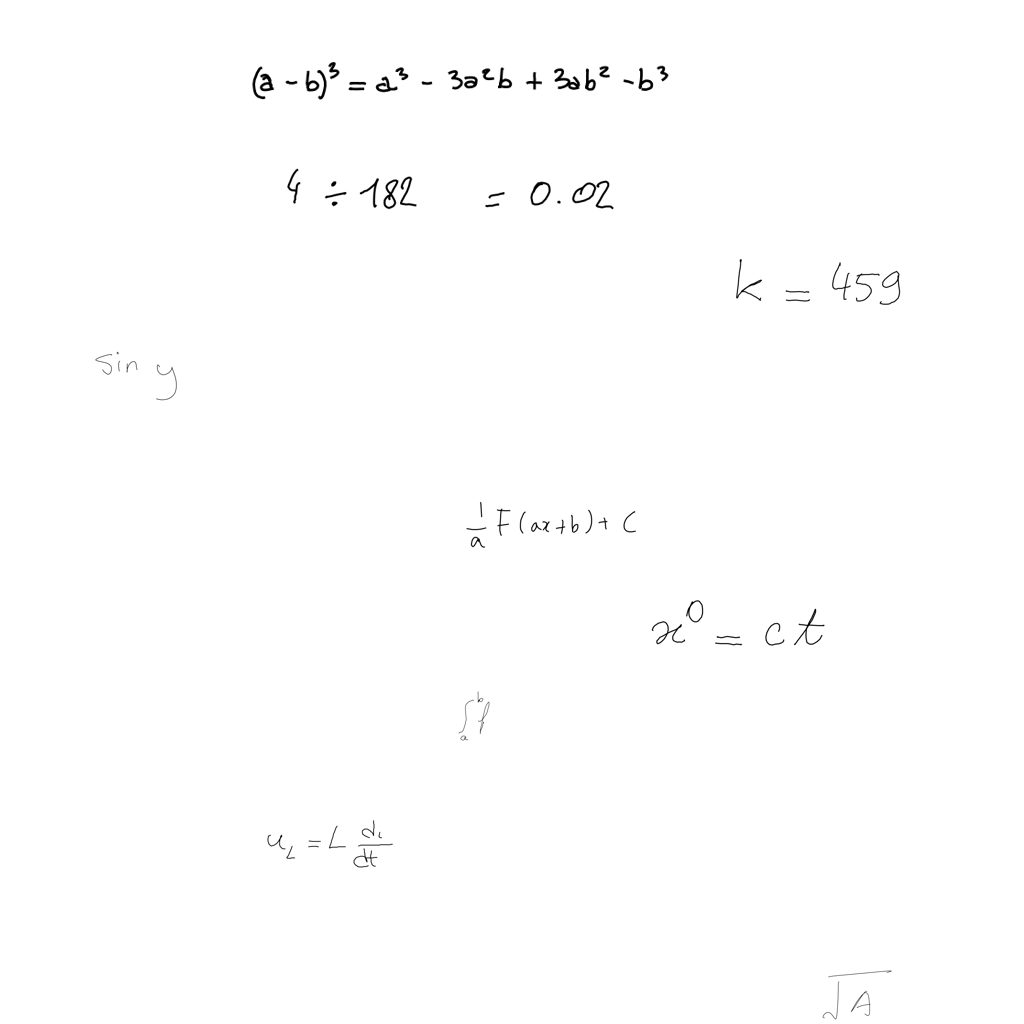 (a - b)³ = a³ - 3a²b + 3ab² - b³
4 ÷ 182 = 0.02
k = 459
sin y
\frac{1}{a} F(ax+b) + C
x⁰ = ct
\int_a^b f
u_L = L \frac{di}{dt}
\sqrt{A}